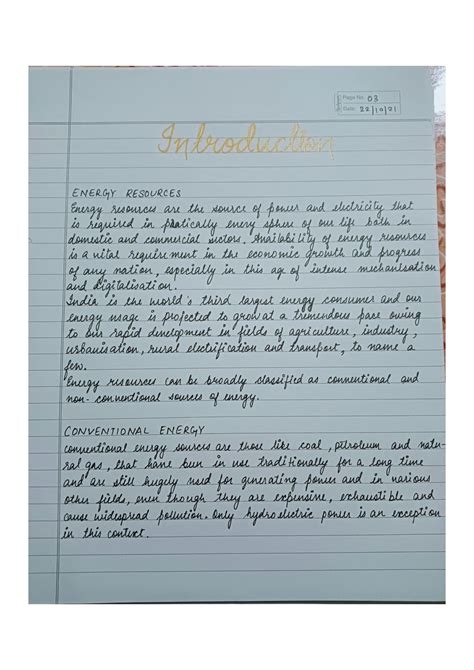 Page No. 03
Date: 22/10/21
Introduction
ENERGY RESOURCES
Energy resources are the source of power and electricity that
is required in pratically every sphere of our life both in
domestic and commercial sectors. Availability of energy resources
is a vital requirement in the economic growth and progress
of any nation, especially in this age of intense mechanisation
and digitalisation.
India is the world's third largest energy consumer and our
energy usage is projected to grow at a tremendous pace owing
to our rapid development in fields of agriculture, industry,
urbanisation, rural electrification and transport, to name a
few.
Energy resources can be broadly classified as conventional and
non-conventional sources of energy.
CONVENTIONAL ENERGY
conventional energy sources are those like coal, petroleum and natu-
ral gas, that have been in use traditionally for a long time
and are still hugely used for generating power and in various
other fields, even though they are expensive, exhaustible and
cause widespread pollution. Only hydroelectric power is an exception
in this context.